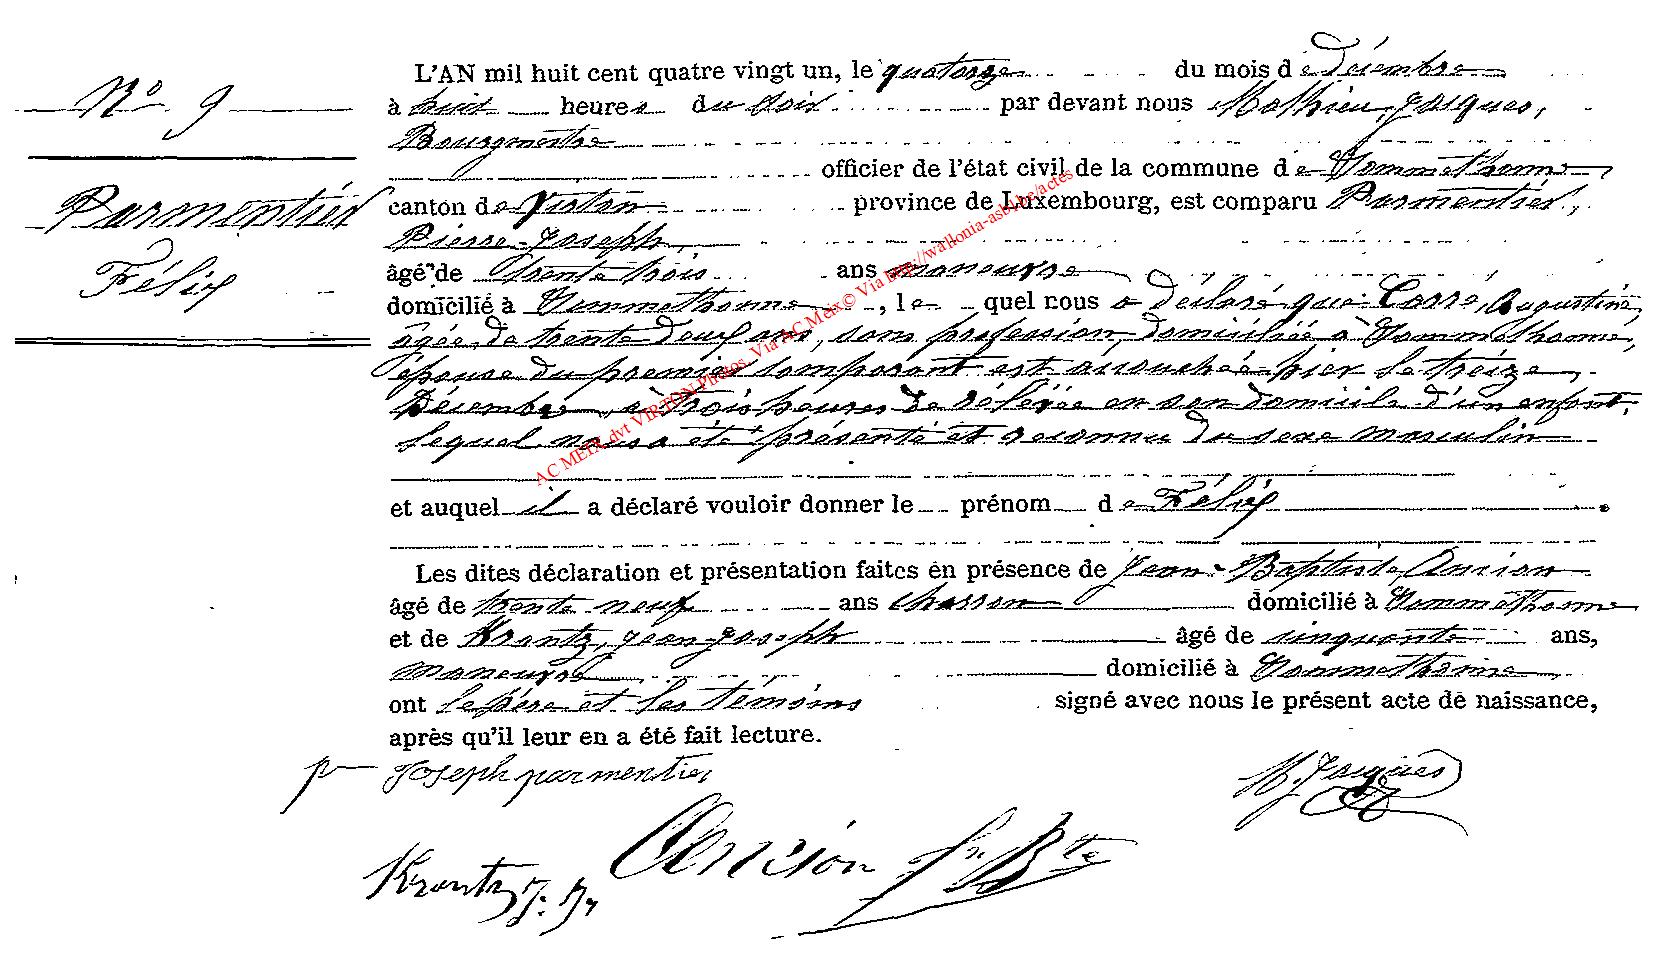 N° 9
Parmentier
Félix
L'AN mil huit cent quatre vingt un, le quatorze du mois de décembre
à huit heures du soir par devant nous Mathieu, Jacques,
Bourgmestre
officier de l'état civil de la commune de Sommethonne
canton de Virton province de Luxembourg, est comparu Parmentier,
Pierre-Joseph,
âgé de trente trois ans manœuvre
domicilié à Sommethonne, le quel nous a déclaré que Carré, Augustine,
âgée de trente deux ans, sans profession, domiciliée à Sommethonne,
épouse du premier comparant est accouchée hier le treize
décembre, à trois heures de rélevée en son domicile d'un enfant
lequel nous a été présenté et reconnu du sexe masculin
et auquel il a déclaré vouloir donner le prénom de Félix.
Les dites déclaration et présentation faites en présence de Jean-Baptiste, Ancion
âgé de trente neuf ans charron domicilié à Sommethonne
et de Krantz, Jean-Joseph âgé de cinquante ans,
manœuvre domicilié à Sommethonne
ont le père et les témoins signé avec nous le présent acte de naissance,
après qu'il leur en a été fait lecture.
p Joseph parmentier
M. Jacques
Ancion Jn Bte
Krantz J. J.
AC MEIX dvt VIRTON Photos Via AC Meix© Via http://wallonia-asbl.be/actes